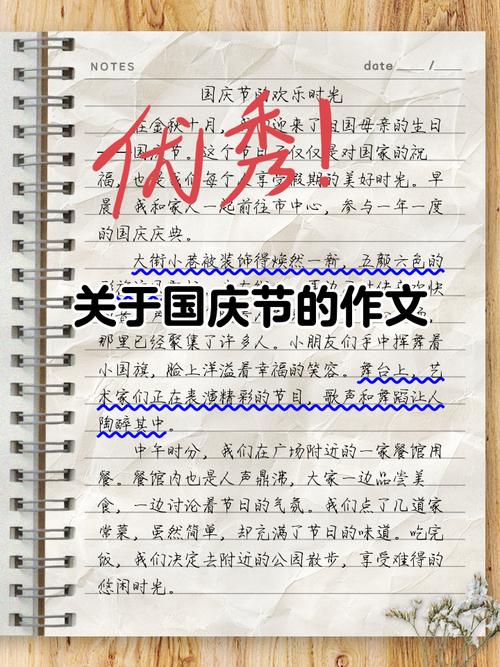 NOTES
date ____ / ____
国庆节的欢乐时光
在金秋十月，迎来了祖国母亲的生日
国庆节。这个节日不仅仅是对国家的祝
福，也是我们每个人享受假期的美好时光。早
晨，我和家人一起前往市中心，参与一年一度
的国庆庆典。
优秀！
大街小巷被装饰得焕然一新，五颜六色的
关于国庆节的作文
那里已经聚集了许多人。小朋友们手中挥舞着
小国旗，脸上洋溢着幸福的笑容。舞台上，艺
术家们正在表演精彩的节目，歌声和舞蹈让人
陶醉其中。
中午时分，我们在广场附近的一家餐馆用
餐。餐馆内也是人声鼎沸，大家一边品尝美
食，一边讨论着节日的气氛。我们点了几道家
常菜，虽然简单，却充满了节日的味道。吃完
饭，我们决定去附近的公园散步，享受难得的
悠闲时光。